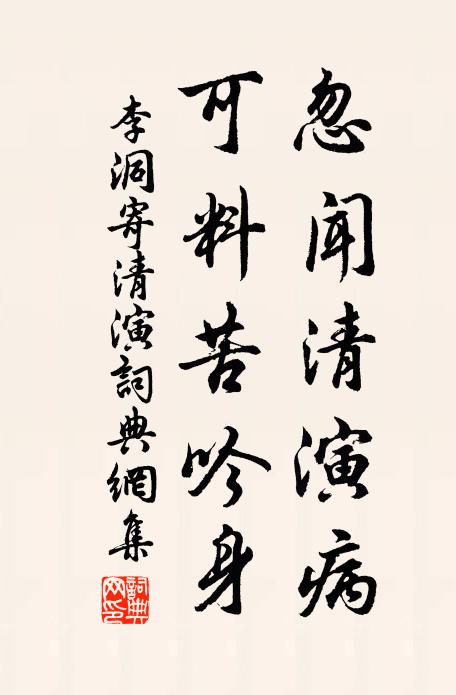 忽闻清演病
可料苦吟身
李洞寄清演詞典網集
詞典網印